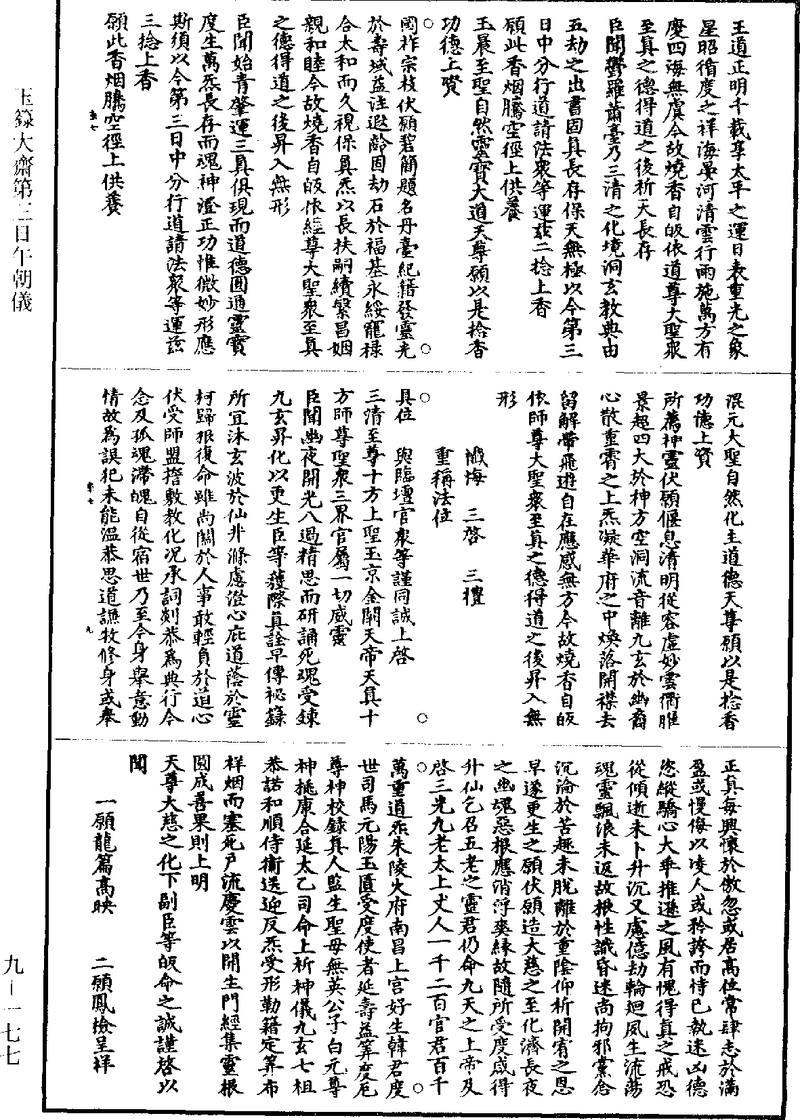 玉籙大齋第三日午朝儀
九—一七七
王道正明千載享太平之運日表重光之象
星昭循度之祥海晏河清雲行雨施萬方有
慶四海無虞今故燒香自皈依道尊大聖眾
至真之德得道之後祈天長存
臣聞鬱羅蕭臺乃三清之化境洞玄教典由
五劫之出書固真長存保天無極以今第三
日中分行道請法眾等運茲二捻上香
願此香烟騰空徑上供養
玉晨至聖自然靈寶大道天尊願以是捻香
功德上資
國祚宗枝伏願碧簡題名丹臺紀籍發靈光
於壽域益注遐齡固劫石於福基永綏寵祿
合太和而久視保真炁以長扶嗣續繁昌姻
親和睦今故燒香自皈依經尊大聖眾至真
之德得道之後昇入無形
臣聞始青肇運三真俱現而道德圓通靈寶
度生萬炁長存而魂神澄正功惟微妙形應
斯須以今第三日中分行道請法眾等運茲
三捻上香
願此香烟騰空徑上供養
混元大聖自然化主道德天尊願以是捻香
功德上資
所薦神靈伏願偃息清明從容虛妙雲衢躍
景超四大於神方空洞流音離九玄於幽裔
心散重霄之上炁凝華府之中煥落開襟去
留解帶飛遊自在應感無方今故燒香自皈
依師尊大聖眾至真之德得道之後昇入無
形
懺悔 三啓 三禮
重稱法位
具位 與臨壇官眾等謹同誠上啓
三清至尊十方上聖玉京金闕天帝天真十
方師尊聖眾三界官屬一切威靈
臣聞幽夜開光八過精思而研誦死魂受鍊
九玄昇化以更生臣等獲際真詮早傳祕籙
所宜沐玄波於仙井滌慮澄心庇道蔭於靈
柯歸根復命雖尚關於人事敢輕負於道心
伏受師盟誓敷教化况承詞剡恭為典行今
念及孤魂滯魄自從宿世乃至今身舉意動
情故為誤犯未能溫恭思道謙牧修身或奉
正真每興懷於傲忽或居高位常肆志於滿
盈或慢侮以凌人或矜誇而恃已執迷凶德
恣縱驕心大乖推遜之風有愧得真之戒恐
從傾逝未卜升沉又慮億劫輪迴風生流蕩
魂靈飄浪未返故根性識昏迷尚拘邪黨含
沉淪於苦趣未脫離於重陰仰祈開宥之恩
早遂更生之願伏願造大慈之至化濟長夜
之幽魂惡根應消浮爽緣故隨所受度咸得
升仙乞召五老之靈君仍命九天之上帝及
啓三光九老太上丈人一千二百官君百千
萬重道炁朱陵火府南昌上宮好生韓君度
世司馬元陽玉匱受度使者延壽益筭度厄
尊神校錄真人監生聖母無英公子白元尊
神桃康合延太乙司命上祈神儀九玄七祖
恭諾和順侍衛送迎反炁受形勒籍定筭布
祥烟而塞死戶流慶雲以開生門經集靈根
圓成善果則上明
天尊大慈之化下副臣等皈命之誠謹啓以
聞
一願龍篇高映 二願鳳撿呈祥